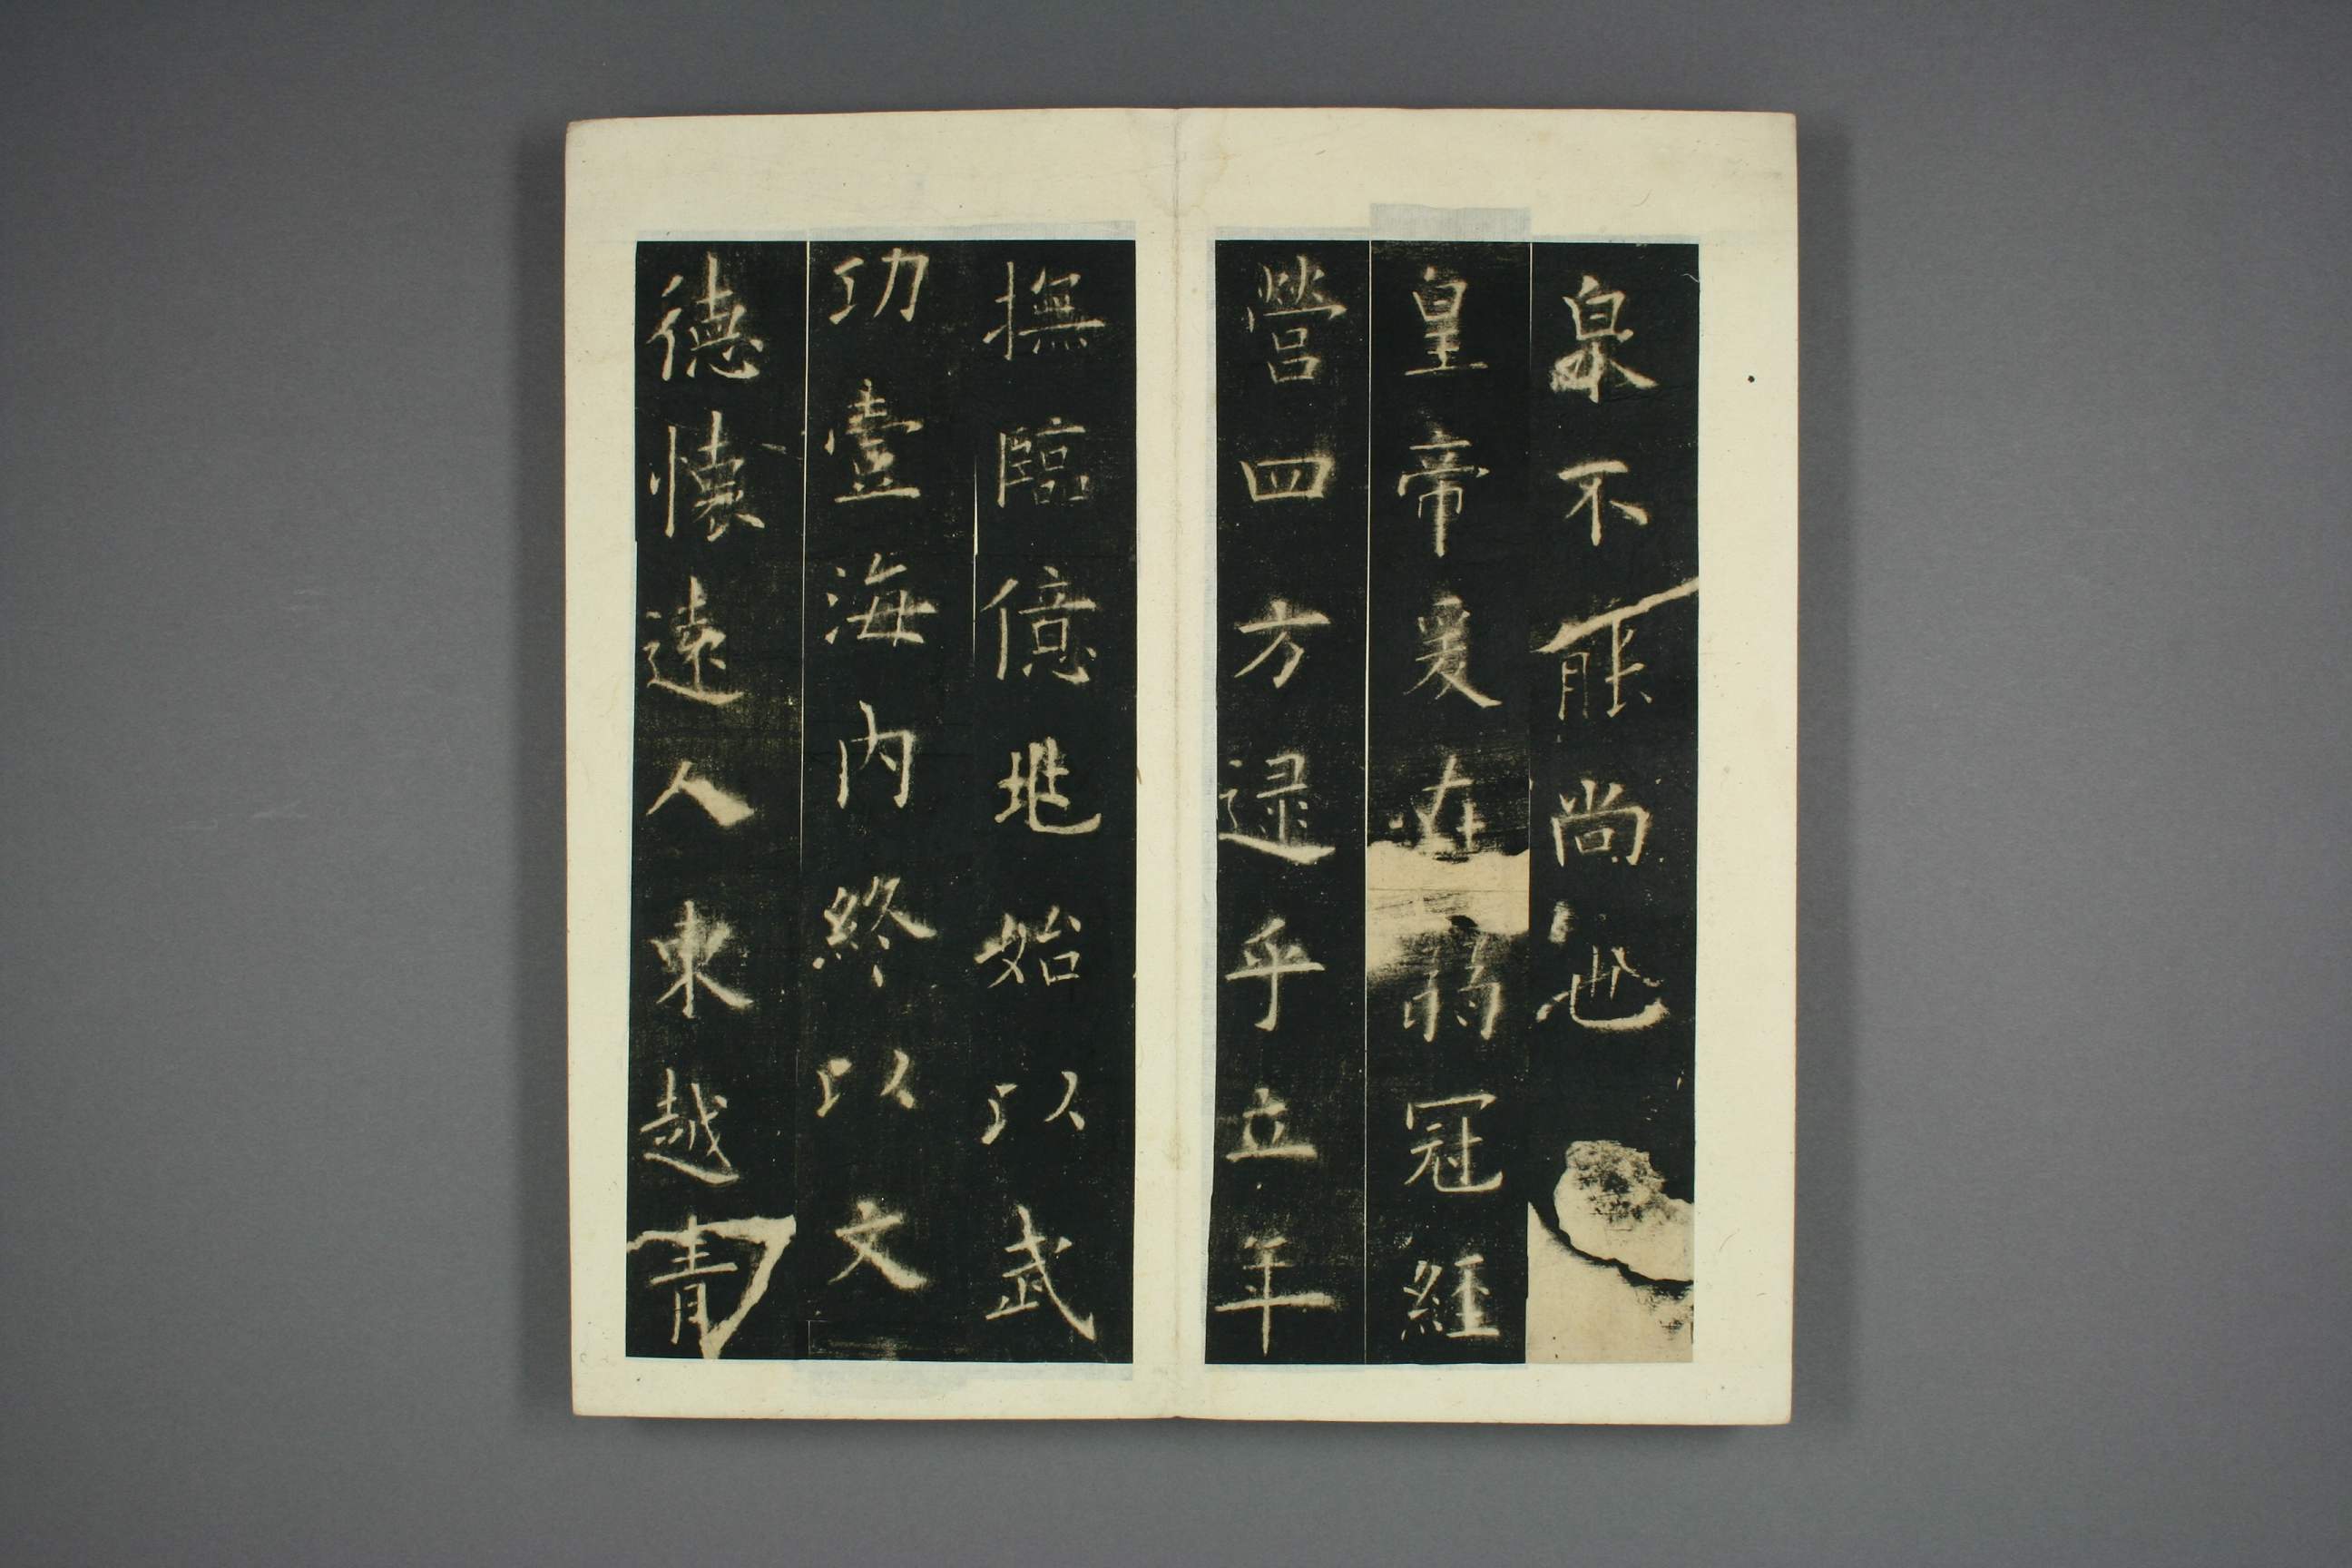 泉不能尚也
皇帝爰在弱冠經
營四方逮乎立年
撫臨億兆始以武
功壹海内終以文
德懷遠人東越青